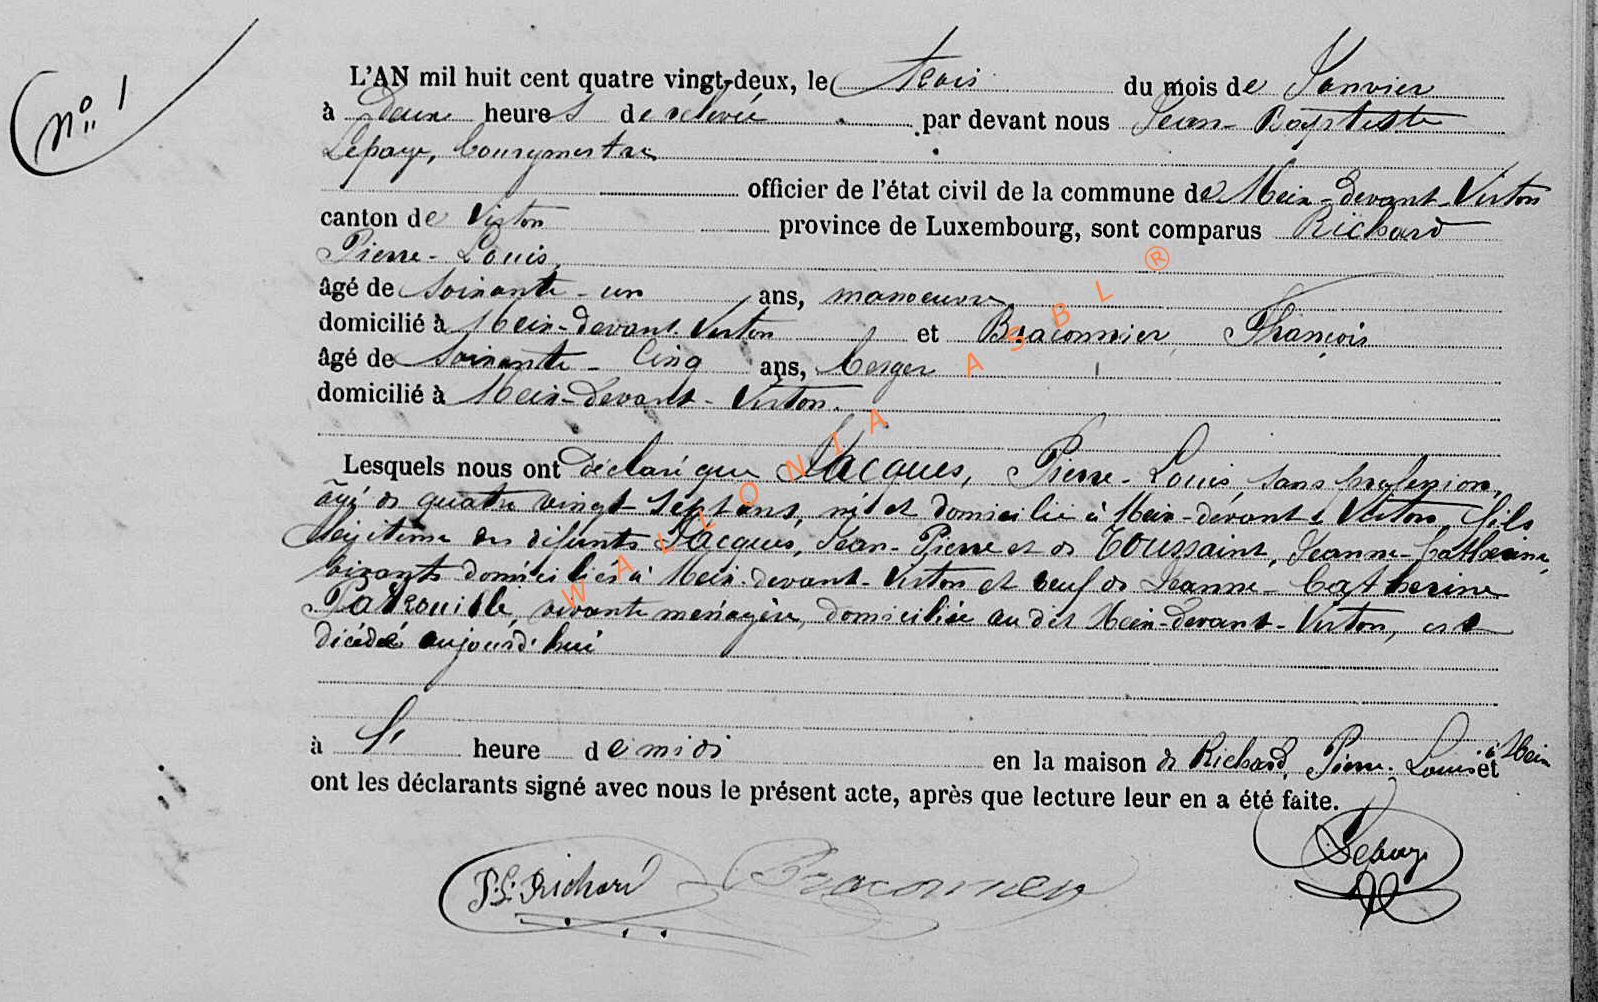 N° 1
L'AN mil huit cent quatre vingt-deux, le trois du mois de Janvier
à deux heures de relevée par devant nous Jean-Baptiste
Lepage, bourgmestre
officier de l'état civil de la commune de Meix-devant-Virton
canton de Virton province de Luxembourg, sont comparus Richard
Pierre-Louis,
âgé de soixante-un ans, manoeuvre,
domicilié à Meix-devant-Virton et Braconnier, François
âgé de soixante-cinq ans, berger
domicilié à Meix-devant-Virton.
Lesquels nous ont déclaré que Jacques, Pierre-Louis, sans profession,
âgé de quatre vingt sept ans, né et domicilié à Meix-devant-Virton, fils
légitime des défunts Jacques, Jean-Pierre et de Toussaint, Jeanne-Catherine,
vivants domiciliés à Meix-devant-Virton et veuf de Jeanne-Catherine
Patrouille, vivante ménagère, domiciliée au dit Meix-devant-Virton, est
décédé aujourd'hui
à heure de midi en la maison de Richard, Pierre-Louis à Meix et
ont les déclarants signé avec nous le présent acte, après que lecture leur en a été faite.
P. L. Richard Braconnier Lepage
WALLONIA ASBL ®